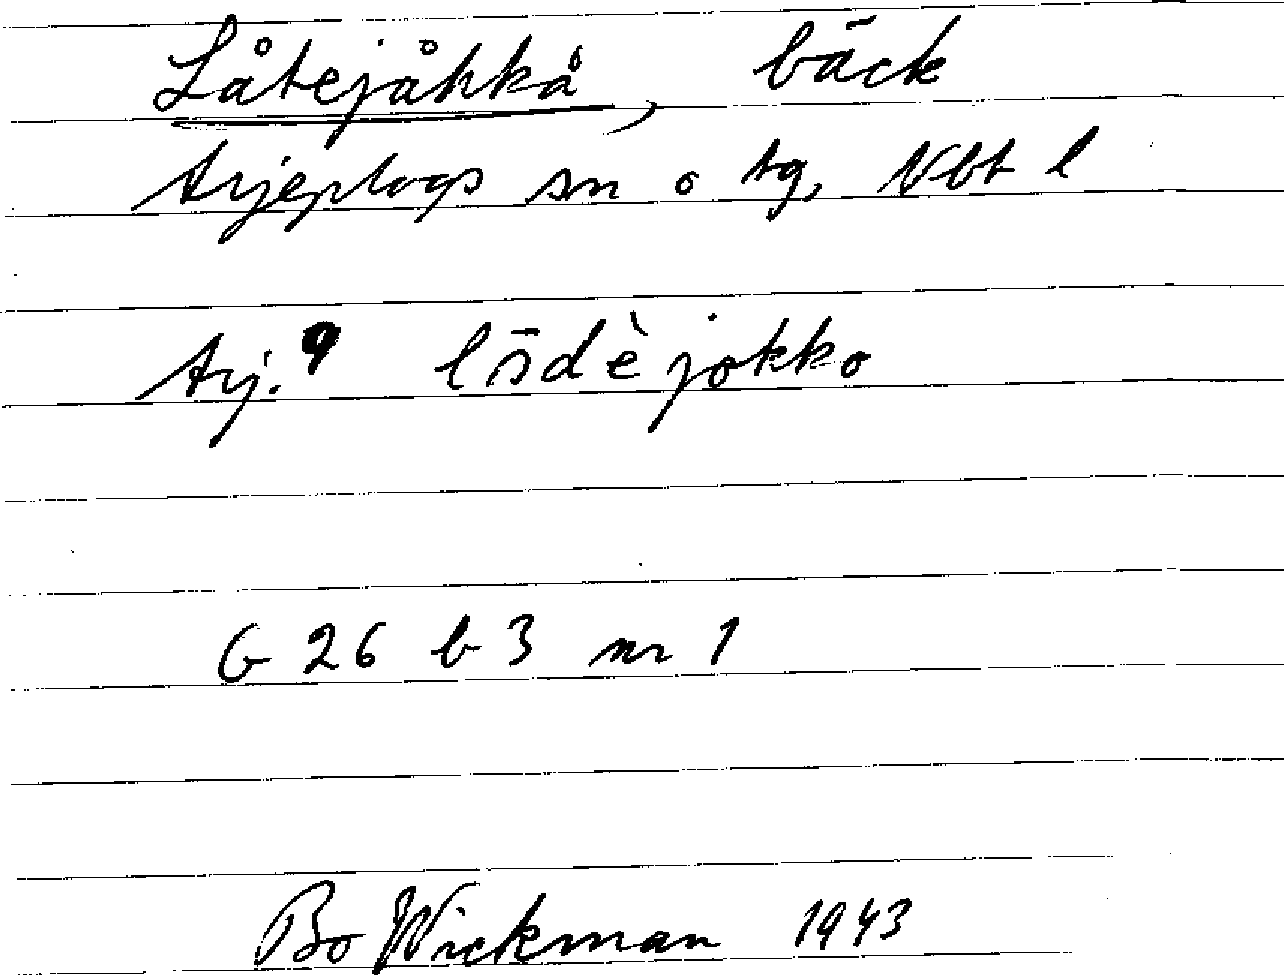 Låtejåkkå, bäck
Arjeplogs sn o tg, Nbt l
Arj. 9 lōdèjokko
G 26 b 3 nr 1
Bo Wickman 1943